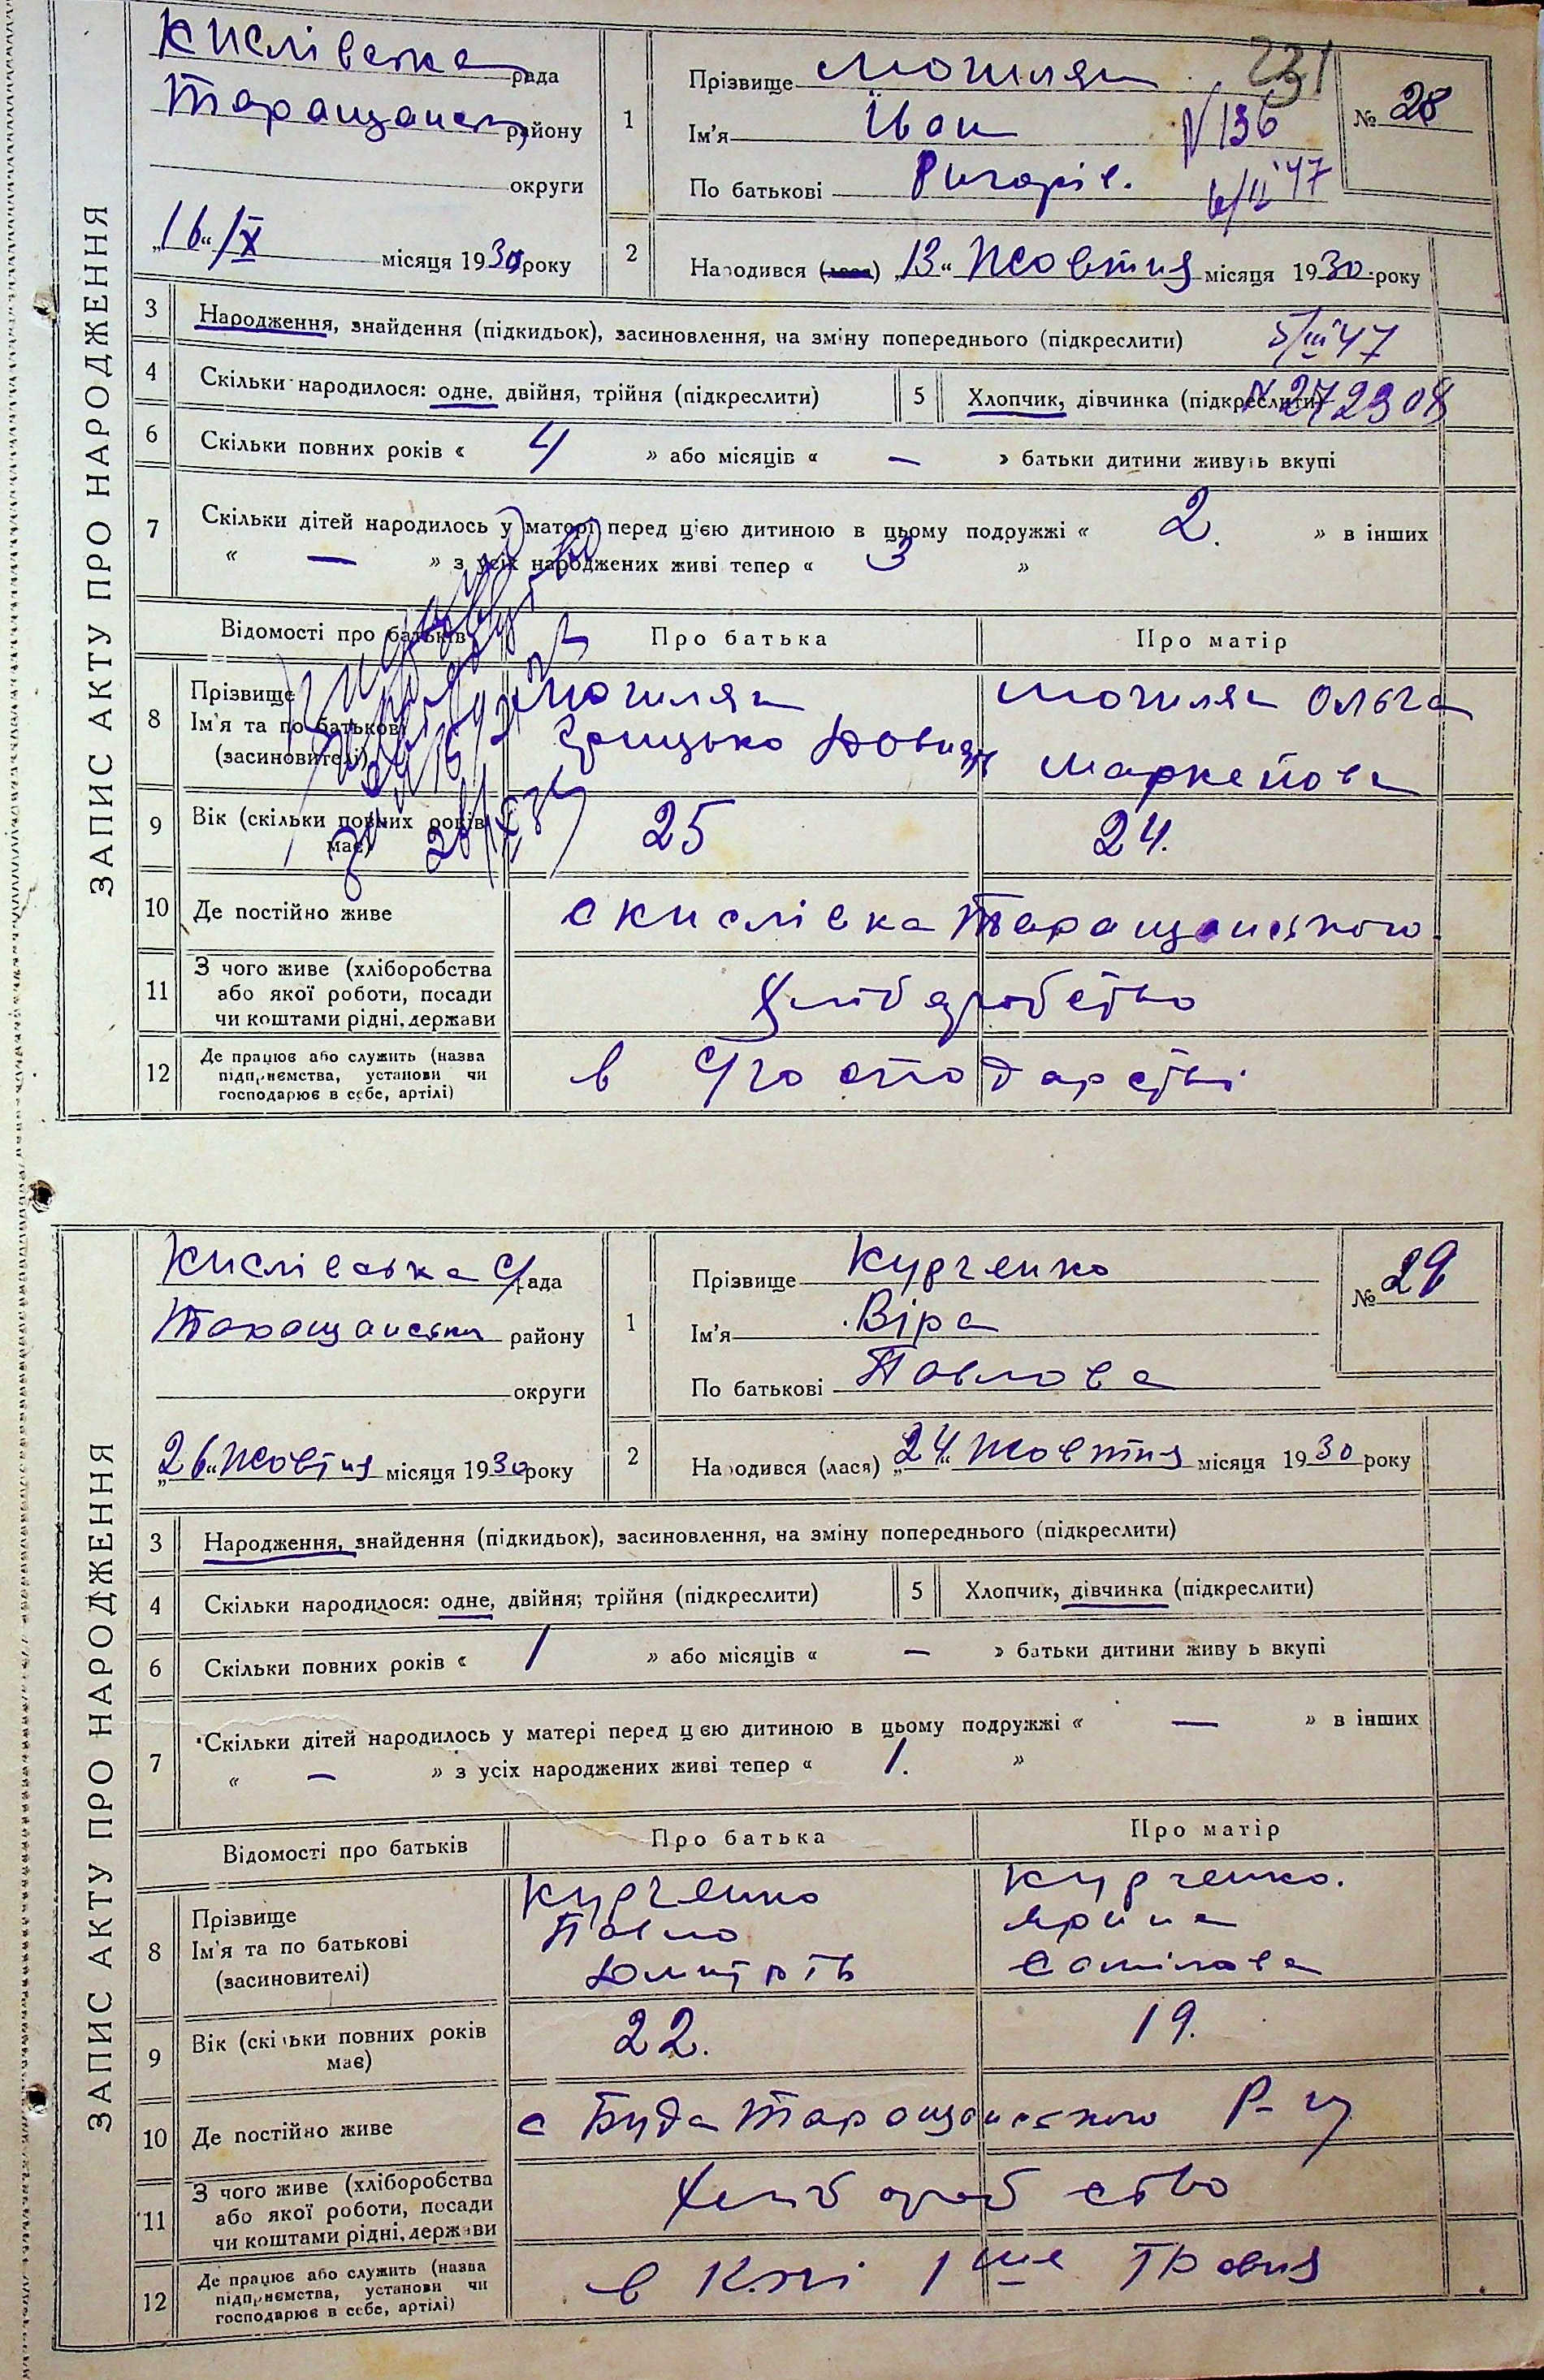 ЗАПИС АКТУ ПРО НАРОДЖЕННЯ
Кислівська рада
Таращанськ району
округи
„16“/X місяця 1930 року
231
1 Прізвище Могиляк
Ім'я Іван
По батькові Ригорів.
№ 28
N 136
6/II 47
2 Народився (лася) „13“ Жовтня місяця 1930 року
3 Народження, знайдення (підкидьок), засиновлення, на зміну попереднього (підкреслити)
5/III 47
4 Скільки народилося: одне, двійня, трійня (підкреслити) 5 Хлопчик, дівчинка (підкреслити)
N 272308
6 Скільки повних років « 4 » або місяців « — » батьки дитини живуть вкупі
7 Скільки дітей народилось у матері перед цією дитиною в цьому подружжі « 2. » в інших
« — » з усіх народжених живі тепер « 3 »
Відомості про батьків Про батька Про матір
8 Прізвище
Ім'я та по батькові
(засиновителі)
Могиляк
Грицько Довид
Могиляк Ольга
Маркейова
9 Вік (скільки повних років має) 25 24.
10 Де постійно живе с Кислівка Таращанського
11 З чого живе (хліборобства
або якої роботи, посади
чи коштами рідні, держави
Хліборобство
12 Де працює або служить (назва
підприємства, установи чи
господарює в себе, артілі)
в С/господарстві
ЗАПИС АКТУ ПРО НАРОДЖЕННЯ
Кислівська С/рада
Таращанськ району
округи
„26“ Жовтня місяця 1930 року
1 Прізвище Курченко
Ім'я Віра
По батькові Павлова
№ 29
2 Народився (лася) „24“ Жовтня місяця 1930 року
3 Народження, знайдення (підкидьок), засиновлення, на зміну попереднього (підкреслити)
4 Скільки народилося: одне, двійня, трійня (підкреслити) 5 Хлопчик, дівчинка (підкреслити)
6 Скільки повних років « 1 » або місяців « — » батьки дитини живу ь вкупі
7 Скільки дітей народилось у матері перед ц єю дитиною в цьому подружжі « — » в інших
« — » з усіх народжених живі тепер « 1. »
Відомості про батьків Про батька Про матір
8 Прізвище
Ім'я та по батькові
(засиновителі)
Курченко
Павло
Курченко.
Ярина
9 Вік (скільки повних років
має)
22. 19.
10 Де постійно живе с Буда Таращанського Р-у
11 З чого живе (хліборобства
або якої роботи, посади
чи коштами рідні, держави
Хліборобство
12 Де працює або служить (назва
підприємства, установи чи
господарює в себе, артілі)
в 1ше Травня